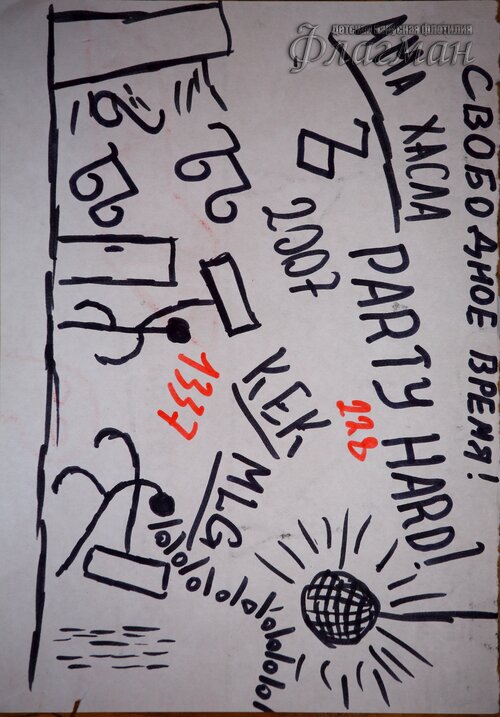 СВОБОДНОЕ ВРЕМЯ!
ХАСЛА
PARTY HARD!
Ъ
2007
228
КЕК
MLG
1337
Ъ
Ъ
детская речная флотилия
Флагман